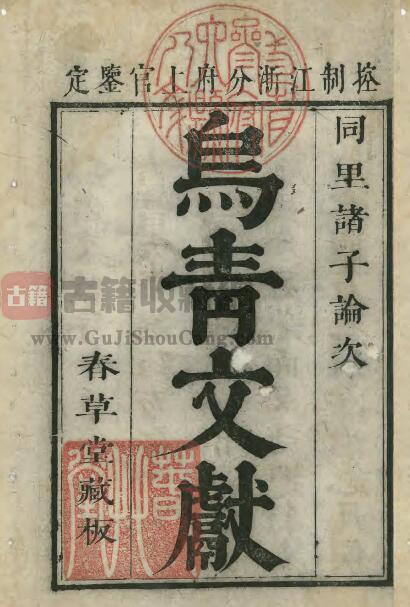 控制江浙分府上官鑒定
同里諸子論次
烏青文獻
春草堂藏板
古籍
古籍收
www.GuJiShouCang.com